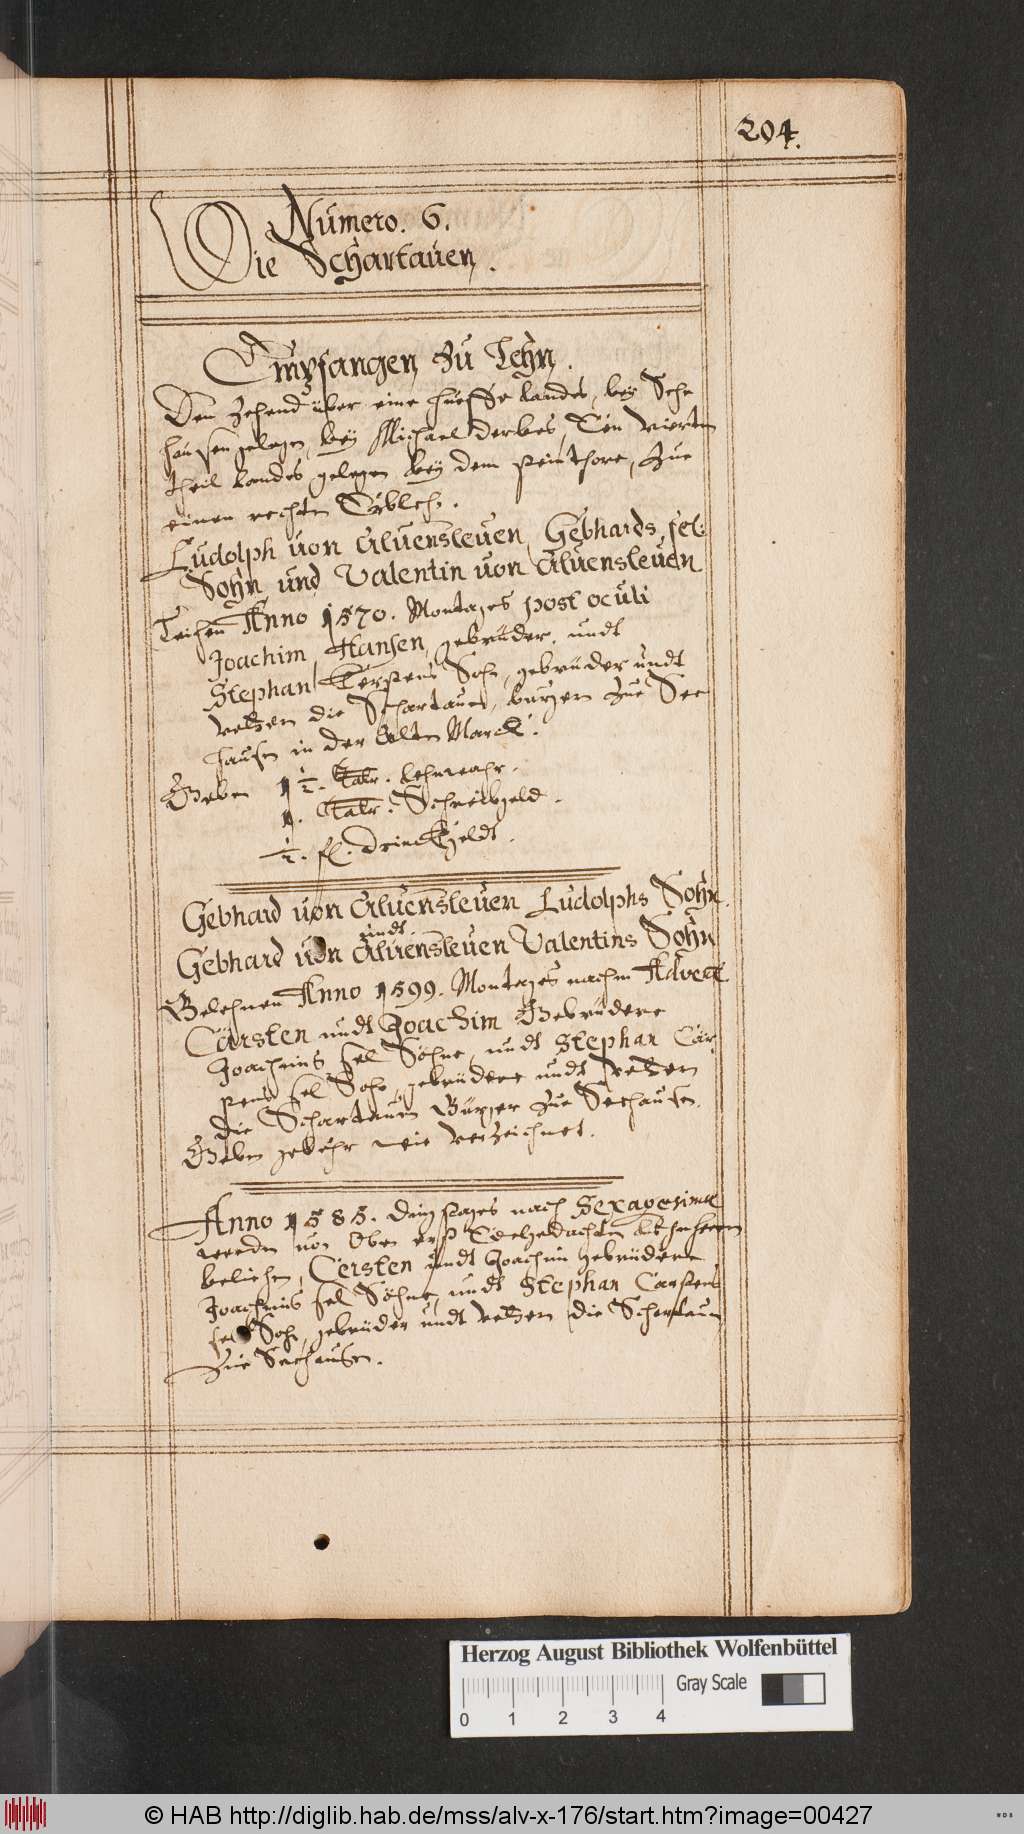 204.
Numero. 6.
Die Schartauen.
Empfangen zu Lehn.
Den Zehend über eine Hueffe Landes, bey Sehe
hausen gelegen, bey Michael derbes, Ein vierten
theil Landes gelegen bey dem steinthore, Zue
einen rechten Erblehn.
Ludolph von Aluensleuen, Gebhards sel:
Sohn, und Valentin von Aluensleuen
Leihen Anno 1570. Montages post oculi
Joachim, Hansen, gebrüder, undt
Stephan Kerstens Sohn, gebrüder undt
vettern die Schartauen, burgern Zue See
hausen in der Alten Marck.
Geben 1 1/2. Talr. Lehnwahr.
1. Talr. Schreibgeld.
1/2. fl. drinckgeldt.
Gebhard von Aluensleuen Ludolphs Sohn,
undt
Gebhard von Aluensleuen Valentins Sohn
Belehnen Anno 1599. Montages nachm Advent
Carsten undt Joachim Gebrüdere
Joachims sel Söhne, undt Stephan Car
stens sel Sohn, gebrüdere undt vettern
die Schartauen Bürger Zue Seehausen.
Geben gebühr wie verzeichnet.
Anno 1585. dingstages nach Sexagesimae
werden von Oben erst Ernhedachten
beliehen, Cersten undt Joachim gebrüdere
Joachims sel Söhne, undt Stephan Carstens
sel Sohn, gebrüder undt vettern die Schartauen
Zue Seehausen.
Herzog August Bibliothek Wolfenbüttel
Gray Scale
0 1 2 3 4
© HAB http://diglib.hab.de/mss/alv-x-176/start.htm?image=00427